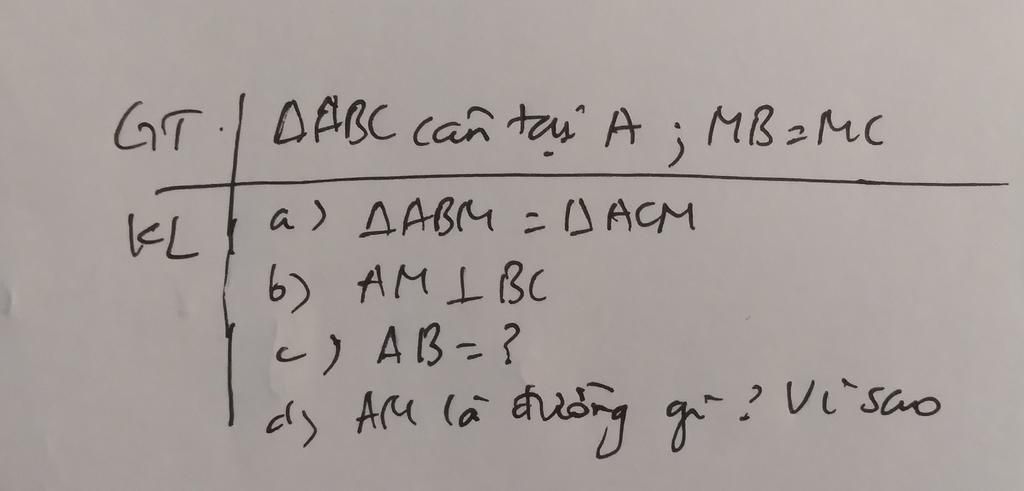 GT. ΔABC cân tại A ; MB = MC
KL a) ΔABM = ΔACM
b) AM ⊥ BC
c) AB = ?
d) AM là đường gì ? Vì sao